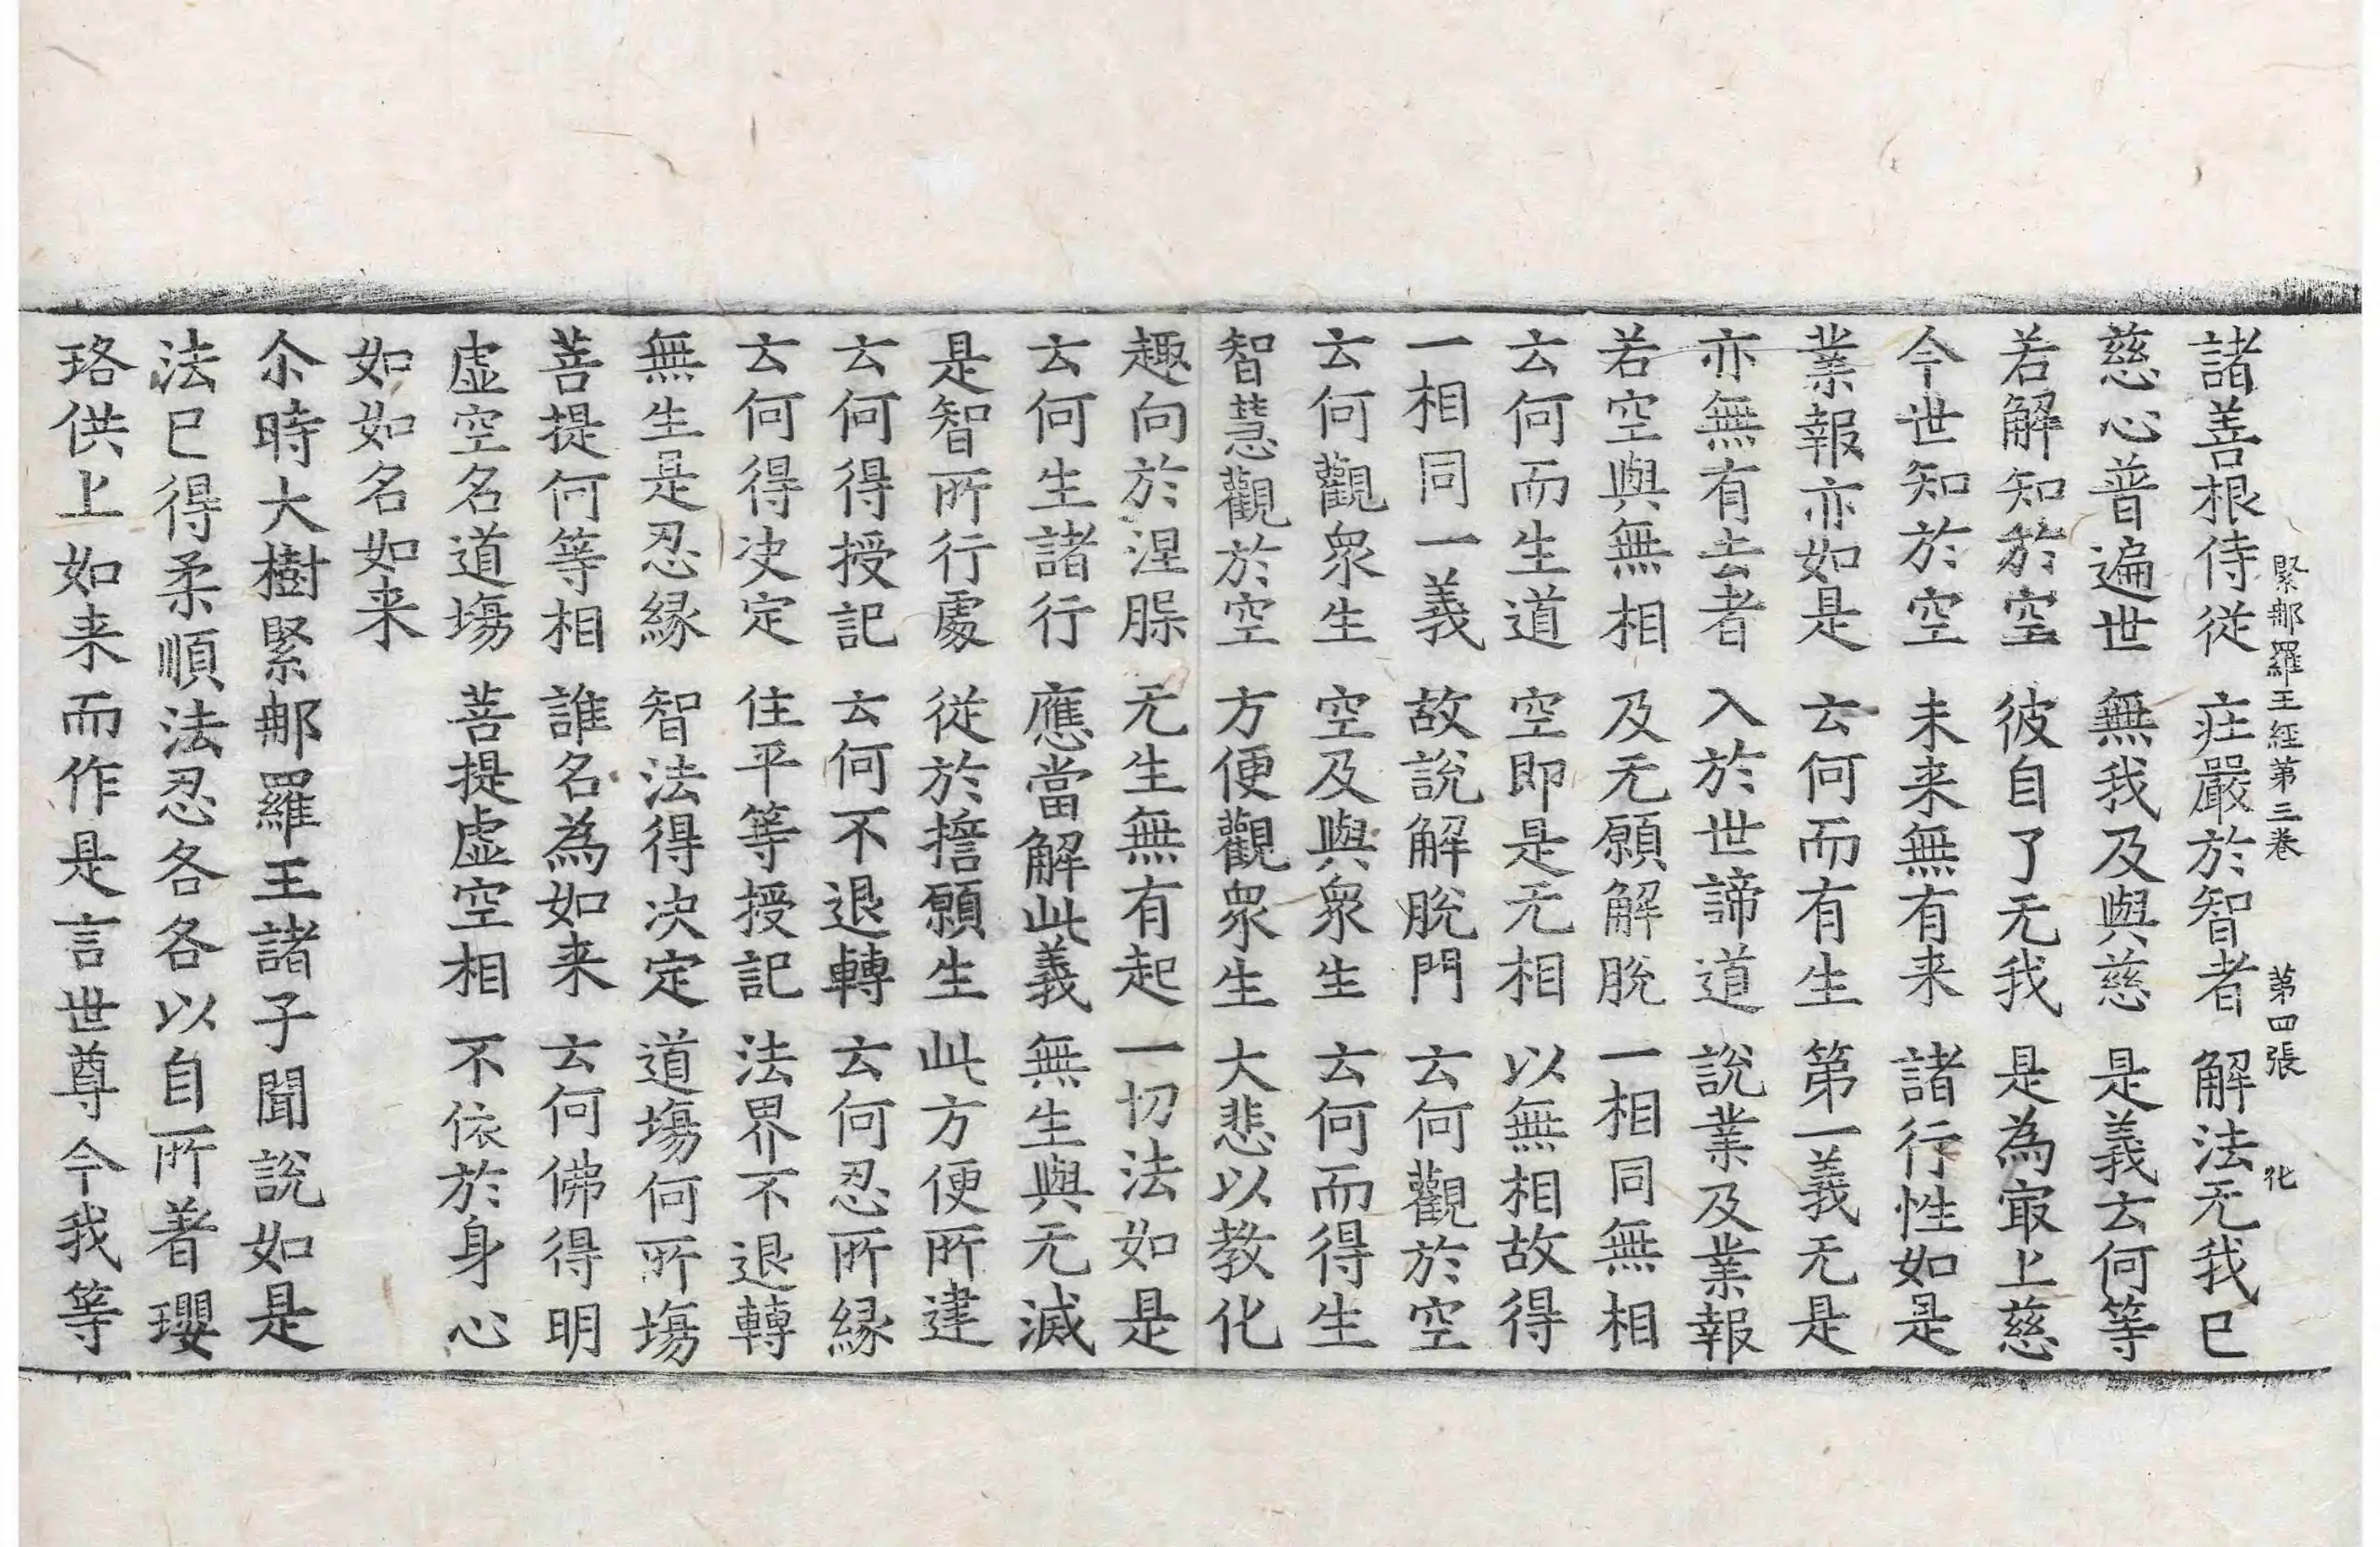 緊那羅王經第三卷 第四張 化
諸善根侍從 莊嚴於智者 解法无我已
慈心普遍世 無我及與慈 是義云何等
若解知於空 彼自了无我 是為㝡上慈
今世知於空 未来無有来 諸行性如是
業報亦如是 云何而有生 第一義无是
亦無有去者 入於世諦道 說業及業報
若空與無相 及无願解脫 一相同無相
云何而生道 空即是无相 以無相故得
一相同一義 故說解脫門 云何觀於空
云何觀衆生 空及與衆生 云何而得生
智慧觀於空 方便觀衆生 大悲以教化
趣向於涅槃 无生無有起 一切法如是
云何生諸行 應當解此義 無生與无滅
是智所行處 從於擔願生 此方便所建
云何得授記 云何不退轉 云何忍所縁
云何得決定 住平等授記 法界不退轉
無生是忍縁 智法得決定 道場何所場
菩提何等相 誰名為如来 云何佛得明
虛空名道場 菩提虛空相 不依於身心
如如名如来
尒時大樹緊那羅王諸子聞說如是
法已得柔順法忍各各以自所著瓔
珞供上如来而作是言世尊今我等